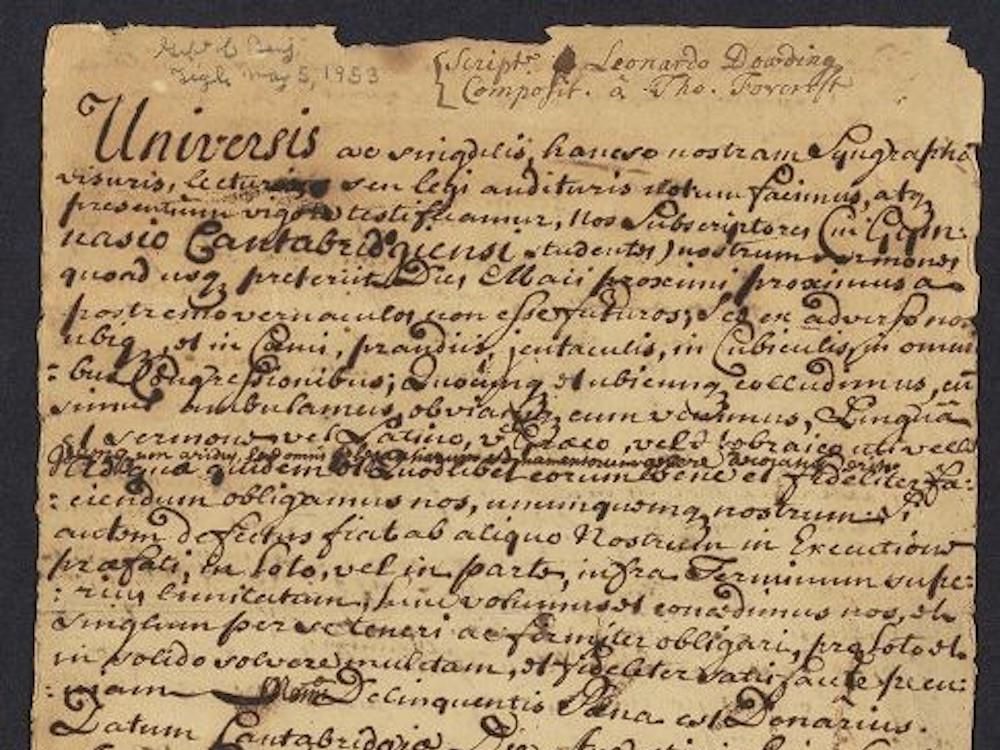 Gift of Benj.
May 5, 1953
Script. Leonardo Dowding
Composit. a Tho. Forcrist
Universis ac singulis, hancce nostram Syngraphā
visuris, lecturis seu legi audituris notum facimus, atq
presentium vigore testificamur, Nos Subscriptores (in Gym:
nasio Cantabridgiensi studentes) nostrum sermones
quoad usq preteriit Dies Maii proximi proximus a
postremo vernaculos non esse futuros; sed ex adverso nos
ubiq, et in Cœnis, prandiis, jentaculis, in Cubiculis, in omni
:bus Congressionibus; Quocunq et ubicunq colludimus, cū
simul ambulamus, obviam cum venimus, Linguā
et sermone vel Latino, vel Græco, vel Hebraico uti velle
omni genere
Ad quæ quidem et Quodlibet eorum bene et fideliter fa:
:ciendum obligamus nos, unumquemq nostrum. Si
autem defectus fiat ab aliquo Nostrum in Executione
præfati, in toto, vel in parte, infra Terminum supe:
:rius limitatum, tunc volumus et concedimus nos, et
singlum per se teneri ac firmiter obligari, pro toto et
in solido solvere mulctam, et fideliter satisfacere pecu:
:niam Delinquentis Pœna est Denarius.
Datum Cantabridgiæ Die